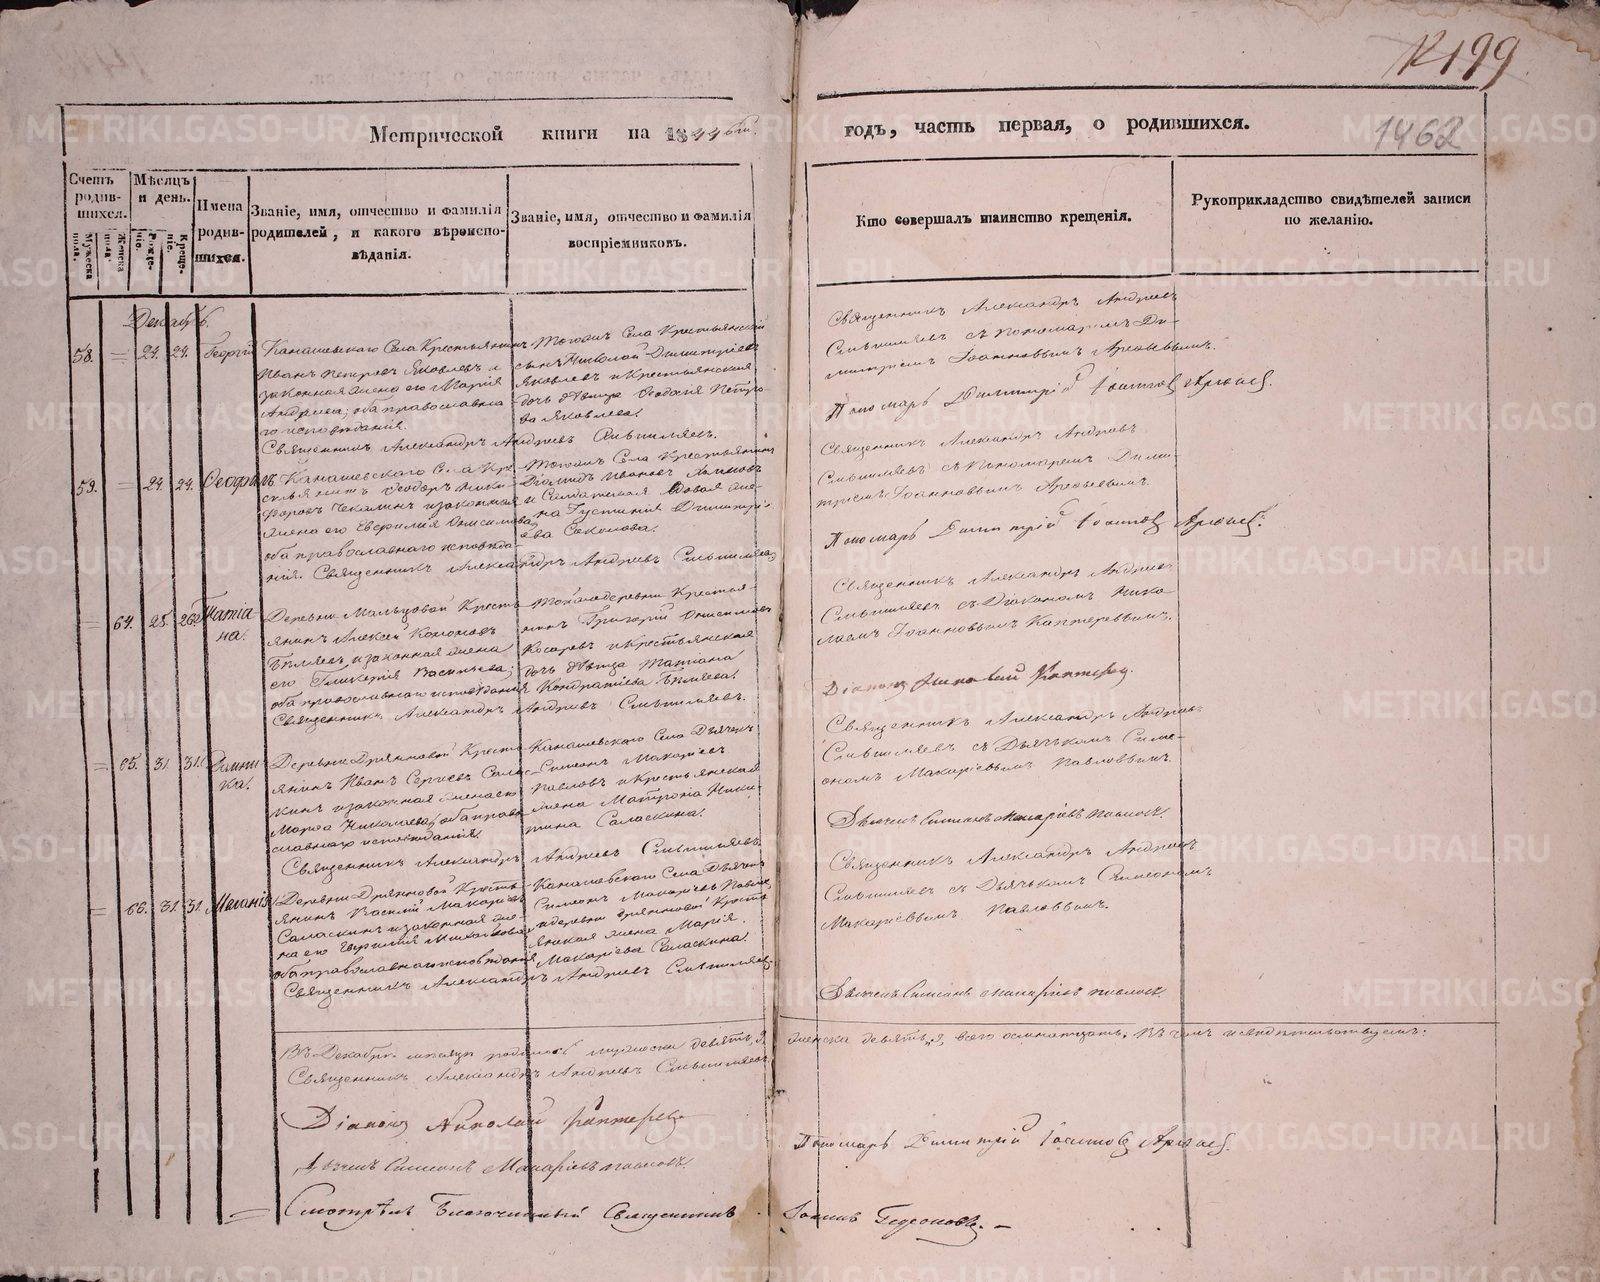 199
1462
Метрической книги на 1844 год, часть первая, о родившихся.
Счетъ родившихся.
Мужеска пола.
Женска пола.
Мѣсяцъ и день.
Рожденіе.
Крещеніе.
Имена родившихся.
Званіе, имя, отчество и фамилія родителей, и какого вѣроисповѣданія.
Званіе, имя, отчество и фамилія воспріемниковъ.
Кто совершалъ таинство крещенія.
Рукоприкладство свидѣтелей записи по желанію.
Декабрь.
58. = 24. 24. Георгій
Канашевскаго Села Крестьянинъ
Иванъ Петровъ Яковлевъ и
законная жена его Марія
Андреева; оба православна
го исповѣданія.
Тогожъ Села Крестьянскій
сынъ Николай Димитріевъ
Яковлевъ и Крестьянская
дочь дѣвица Феодосія Петро-
ва Яковлева.
Священникъ Александръ Андреевъ Сильвиляевъ.
Священникъ Александръ Андреевъ
съ пономаремъ Ди-
митріемъ Іоанновымъ
Пономарь Димитрій Іоанновъ
59. = 24. 24.
Канашевскаго Села Кре
стьянинъ Феодоръ Ники-
форовъ Чекалинъ и законная
жена его Евфимія Онисимова
оба православнаго исповѣда-
нія. Священникъ Александръ Андреевъ
Тогожъ Села Крестьянинъ
Иванов
и Солдатская вдовая же-
на Іустинія Димитрі-
ева Соколова.
Священникъ Александръ Андреевъ
съ Пономаремъ Дими-
тріемъ Іоанновымъ
Пономарь Димитрій Іоанновъ
= 64. 25. 26. Татіа-
на.
Деревни Мальцовой Кресть
янинъ Алексей Кононовъ
Бѣляевъ и законная жена
его Гликерія Васильева;
оба православнаго исповѣданія
Тойже деревни Крестья-
нинъ Григорій Онисимовъ
Косаревъ и Крестьянская
дочь дѣвица Татіана
Кондратіева Бѣляева.
Священникъ Александръ Андреевъ
Священникъ Александръ Андреевъ
съ Діакономъ Нико
лаемъ Іоанновымъ Каптеревымъ.
Діаконъ Николай Каптеревъ.
= 65. 31. 31. Домни-
ка.
Деревни Дрянновой Кресть
янинъ Иванъ Сергеевъ Салас-
кинъ и законная жена его
Марфа Николаева, оба право
славнаго исповѣданія.
Канашевскаго Села Дьячекъ
Симеонъ Макаріевъ
Павловъ и Крестьянская
жена Матрона Ники-
тина Саласкина.
Священникъ Александръ Андреевъ
Священникъ Александръ Андрее-
съ Дьячькомъ Симе-
ономъ Макаріевымъ Павловымъ.
Дьячекъ Симеонъ Макаріевъ Павловъ.
= 66. 31. 31. Меланія
Деревни Дрянновой Кресть
янинъ Василій Макаріевъ
Саласкинъ и законная же-
на его Евфимія Михайлова
оба православнаго исповѣданія
Канашевскаго Села Дьячекъ
Симеонъ Макаріевъ Павловъ
и деревни Дрянновой Кресть
янская жена Марія
Макаріева Саласкина.
Священникъ Александръ Андреевъ
Священникъ Александръ Андреевъ
съ Дьячькомъ Симеономъ
Макаріевымъ Павловымъ.
Дьячекъ Симеонъ Макаріевъ Павловъ.
Въ Декабре месяце родилось мужеска девять, 9, женска девять, 9, всего осмнатцать. Въ чемъ и свидѣтельствуемъ:
Священникъ Александръ Андреевъ
Діаконъ Николай Каптеревъ
Пономарь Димитрій Іоанновъ
Дьячекъ Симеонъ Макаріевъ Павловъ.
Смотрѣлъ Благочинный Священникъ Іоаннъ
METRIKI.GASO-URAL.RU